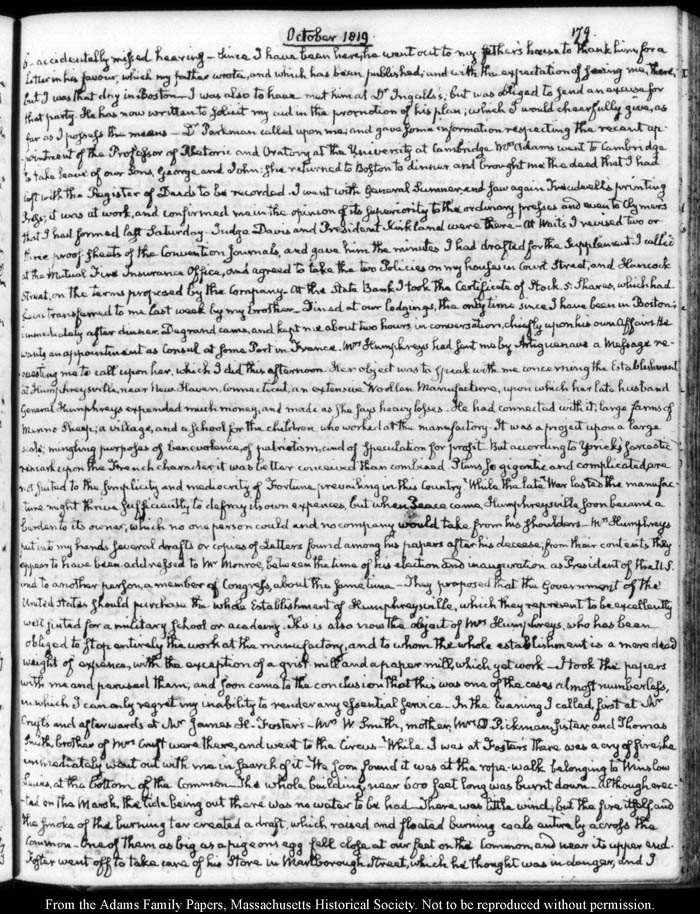 October 1819.
179.
accidentally missed hearing – Since I have been here, he went out to my father's house to thank him, for a
Letter in his favour, which my father wrote, and which has been published; and with the expectation of seeing me, there,
but I was that day in Boston – I was also to have met him at Dr Ingalls's, but was obliged to send an excuse for
that party. He has now written to solicit my aid in the promotion of his plan; which I would cheerfully give, as
far as I possess the means – Dr Parkman called upon me; and gave some information respecting the recent ap-
pointment of the Professor of Rhetoric and Oratory, at the University at Cambridge. Mrs Adams went to Cambridge
to take leave of our Sons, George and John: She returned to Boston to dinner, and brought me the deed that I had
left with the Register of Deeds to be recorded. I went with General Sumner, and saw again Treadwell's printing
Press; it was at work, and confirmed me in the opinion of its superiority to the ordinary presses and even to Clymer's
that I had formed last Saturday – Judge Davis and President Kirkland were there – At Wait's I revised two or
three proof sheets of the Convention Journals, and gave him the minutes I had drafted for the Supplement. I called
at the Mutual Fire Insurance Office, and agreed to take the two Policies on my houses in Court Street, and Hancock
Street, on the terms proposed by the Company. At the State Bank I took the Certificate of Stock. 5. Shares, which had
been transferred to me last week by my brother – Dined at our lodgings, the only time since I have been in Boston;
immediately after dinner, Degrand came, and kept me about two hours in conversation, chiefly upon his own Affairs. He
wants an appointment as Consul at some Port in France. Mrs Humphreys had sent me by a Message re-
questing me to call upon her, which I did this afternoon. Her object was to speak with me concerning the Establishment
at Humphreysville, near New Haven, Connecticut, an extensive Woollen Manufacture, upon which her late husband
General Humphreys expended much money, and made as she says heavy losses. He had connected with it, large farms of
Merino Sheep; a village, and a school for the children who worked at the manufactory. It was a project upon a large
scale; mingling purposes of benevolence, of patriotism, and of speculation for profit. But according to Yorick's sarcastic
remark upon the French character, it was better conceived than combined. Plans so gigantic and complicated are
not suited to the simplicity and mediocrity of Fortune, prevailing in this Country. While the late War lasted the manufac-
ture might thrive sufficiently to defray its own expences, but when Peace came, Humphreysville soon became a
burden to its owner, which no one person could and no company would take from his shoulders – Mrs Humphreys
put into my hands several drafts or copies of Letters found among his papers after his decease; from their contents they
appear to have been addressed to Mr Monroe, between the time of his election and inauguration as President of the U.S.
and to another person, a member of Congress, about the same time – They proposed that the Government of the
United States should purchase the whole Establishment of Humphreysville, which they represent to be excellently
well suited for a military school or academy. This is also now the object of Mrs Humphreys, who has been
obliged to stop entirely the work at the manufactory, and to whom the whole establishment is a mere dead
weight of expence, with the exception of a grist mill and a paper mill, which yet work – I took the papers
with me and perused them, and soon came to the conclusion that this was one of the cases almost numberless,
in which I can only regret my inability to render any essential service. In the Evening I called, first at Mr
Cruft's and afterwards at Mr James H. Foster's – Mrs W Smith, mother, Mrs D Pickman, sister, and Thomas
Smith, brother of Mrs Cruft were there, and went to the Circus. While I was at Foster's there was a cry of fire. he
immediately went out with me in search of it. We soon found it was at the rope-walk belonging to Winslow
Lewis, at the bottom of the Common. The whole building, near 600 feet long was burnt down. although erec-
ted on the Marsh, the tide being out there was no water to be had – There was little wind, but the fire itself and
the smoke of the burning tar created a draft, which raised and floated burning coals entirely across the
Common – One of them as big as a pigeons egg fell close at our feet on the Common, and near its upper end.
Foster went off to take care of his Store in Marlborough Street, which he thought was in danger, and I
From the Adams Family Papers, Massachusetts Historical Society. Not to be reproduced without permission.